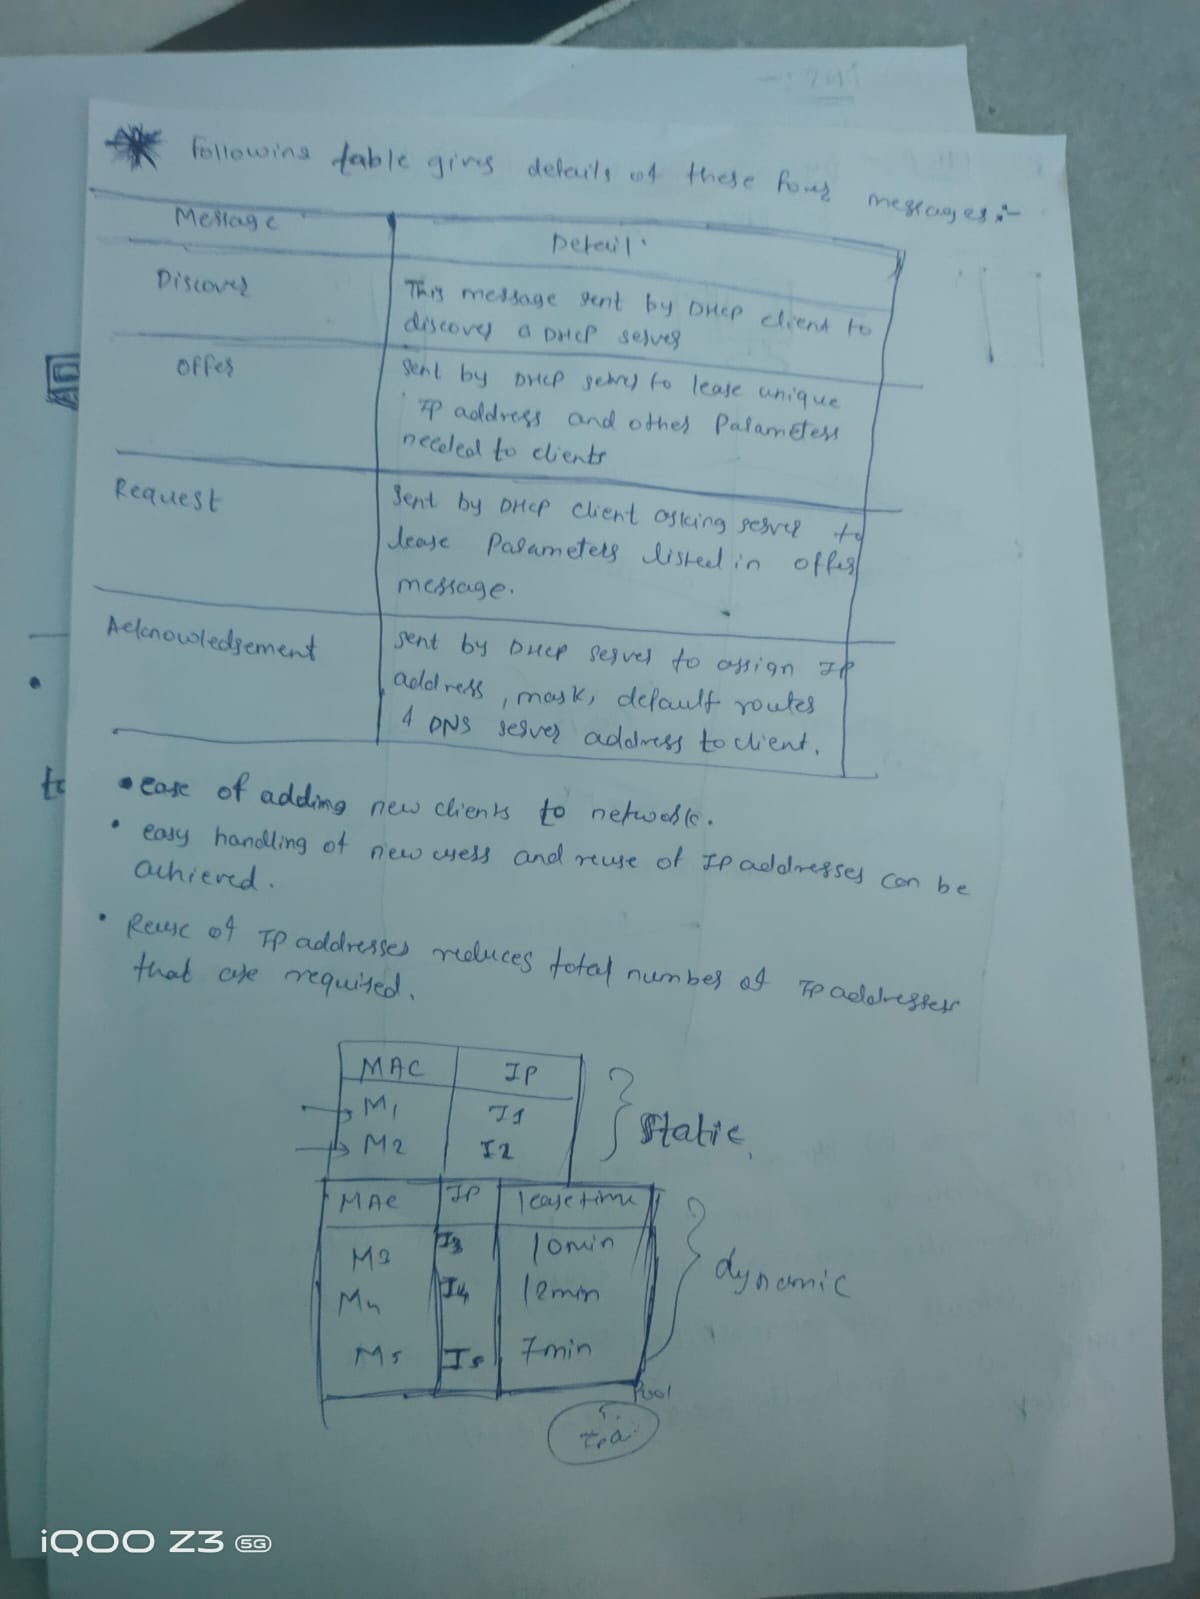 Following table gives details of these four messages:-
Message
Detail
Discover
This message sent by DHCP client to
discover a DHCP server
Offer
Sent by DHCP server to lease unique
IP address and other Parameters
needed to clients
Request
Sent by DHCP client asking server to
lease Parameters listed in offer
message.
Acknowledgement
sent by DHCP server to assign IP
address, mask, default router
& DNS server address to client.
• ease of adding new clients to network.
• easy handling of new users and reuse of IP addresses can be
achieved.
• Reuse of IP addresses reduces total number of IP addresses
that are required.
MAC IP
M1 I1
M2 I2
Static
MAC IP lease time
M3 I3 10min
M4 I4 12min
M5 I5 7min
dynamic
Pool
to
iQOO Z3 5G